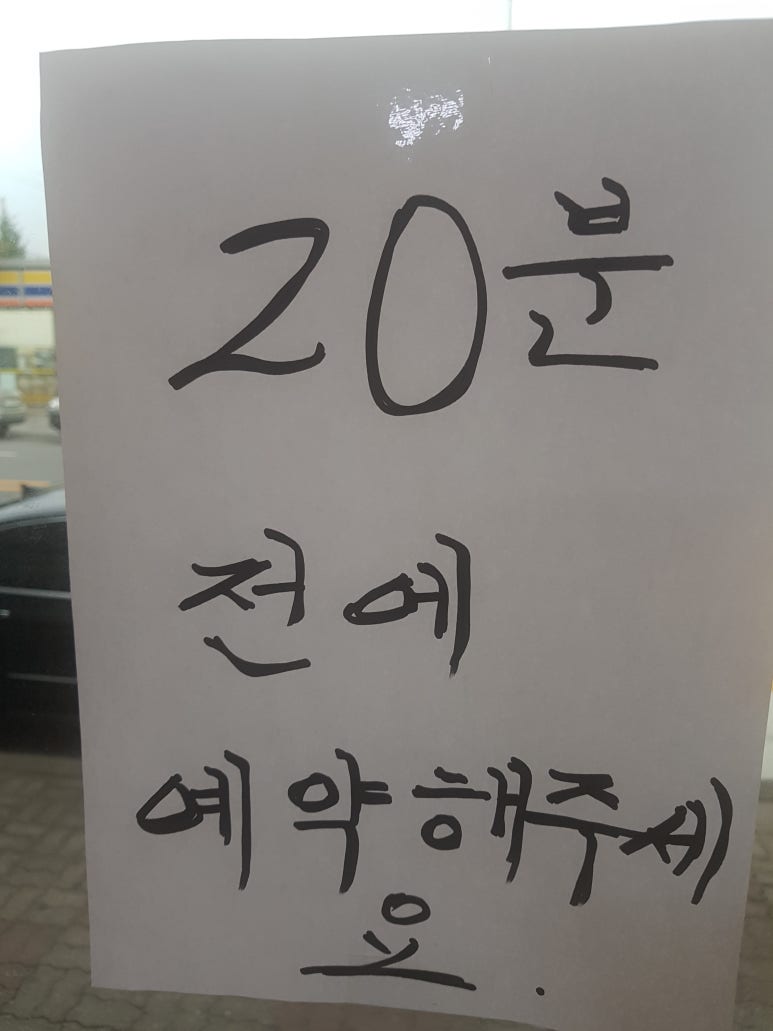 20분
전에
예약해주세
요.